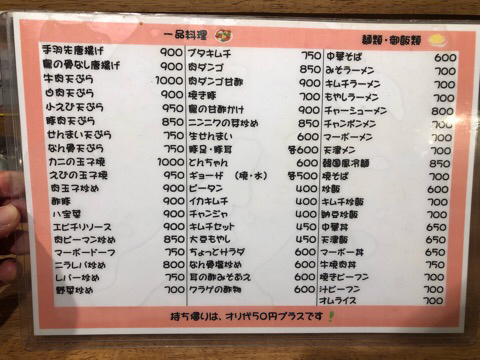 一品料理
手羽先唐揚げ 900
鶏の骨なし唐揚げ 900
牛肉天ぷら 1000
白肉天ぷら 900
小えび天ぷら 950
豚肉天ぷら 850
せんまい天ぷら 750
なん骨天ぷら 750
カニの玉子焼 1000
えびの玉子焼 950
肉玉子炒め 900
酢豚 900
八宝菜 900
エビチリソース 900
肉ピーマン炒め 850
マーボードーフ 750
ニラレバ炒め 800
レバー炒め 750
野菜炒め 700
ブタキムチ 750
肉ダンゴ 850
肉ダンゴ甘酢 900
焼き豚 700
鶏の甘酢かけ 900
ニンニクの芽炒め 850
生せんまい 600
豚足・豚耳 各600
とんちゃん 600
ギョーザ (焼・水) 各500
ピータン 400
イカキムチ 400
チャンジャ 400
キムチセット 450
大豆もやし 450
ちょっとサラダ 600
なん骨塩炒め 600
耳の酢みそあえ 600
クラゲの酢物 600
麺類・御飯類
中華そば 600
みそラーメン 700
キムチラーメン 700
もやしラーメン 700
チャーシューメン 800
チャンポンメン 700
マーボーメン 700
天津メン 700
韓国風冷麺 850
焼そば 700
炒飯 600
キムチ炒飯 700
納豆炒飯 700
中華丼 650
天津飯 650
マーボー丼 650
牛焼肉丼 750
焼きビーフン 700
汁ビーフン 700
オムライス 700
持ち帰りは、オリ代50円プラスです!